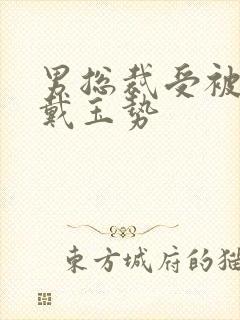 男总裁受被
戴玉势
东方城府的猫